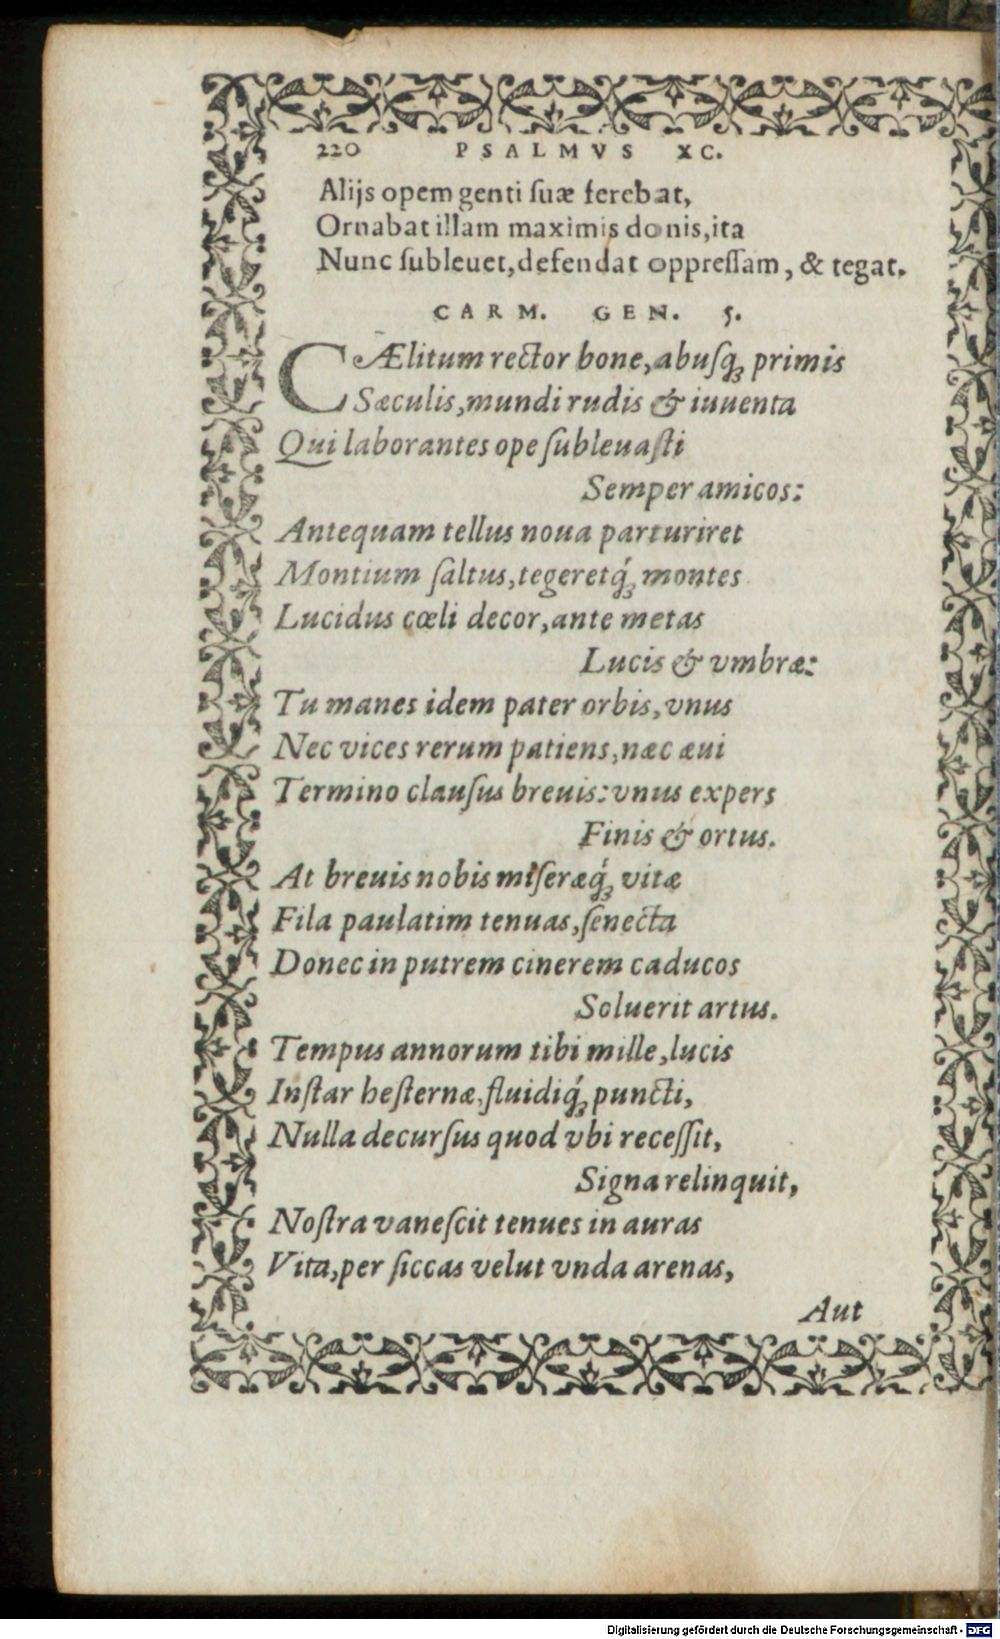 220 PSALMVS XC.
Alijs opem genti ſuæ ferebat,
Ornabat illam maximis donis,ita
Nunc ſubleuet,defendat oppreſſam, & tegat.
CARM. GEN. 5.
CÆlitum rector bone,abuſqꝫ primis
Sæculis,mundi rudis & iuuenta
Qui laborantes ope ſubleuaſti
Semper amicos:
Antequam tellus noua parturiret
Montium ſaltus,tegeretq́ꝫ montes
Lucidus cœli decor,ante metas
Lucis & vmbræ:
Tu manes idem pater orbis,vnus
Nec vices rerum patiens,næc æui
Termino clauſus breuis:vnus expers
Finis & ortus.
At breuis nobis miſeræq́ꝫ vitæ
Fila paulatim tenuas,ſenecta
Donec in putrem cinerem caducos
Soluerit artus.
Tempus annorum tibi mille,lucis
Inſtar heſternæ,fluidiq́ꝫ puncti,
Nulla decurſus quod vbi receſſit,
Signa relinquit,
Noſtra vaneſcit tenues in auras
Vita,per ſiccas velut vnda arenas,
Aut
Digitalisierung gefördert durch die Deutsche Forschungsgemeinschaft - DFG